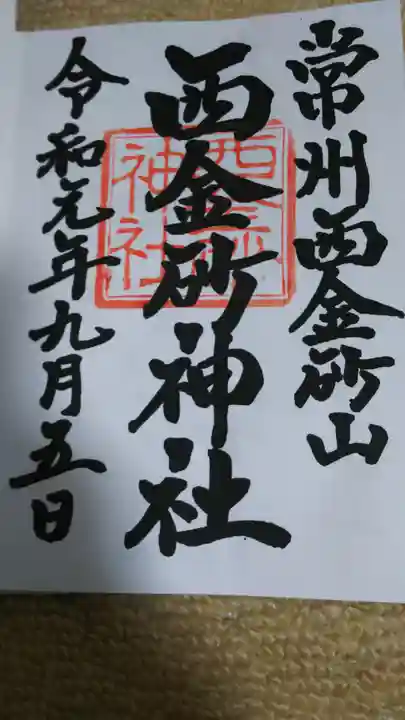 常州西金砂山
西金砂神社
令和元年九月五日
神社